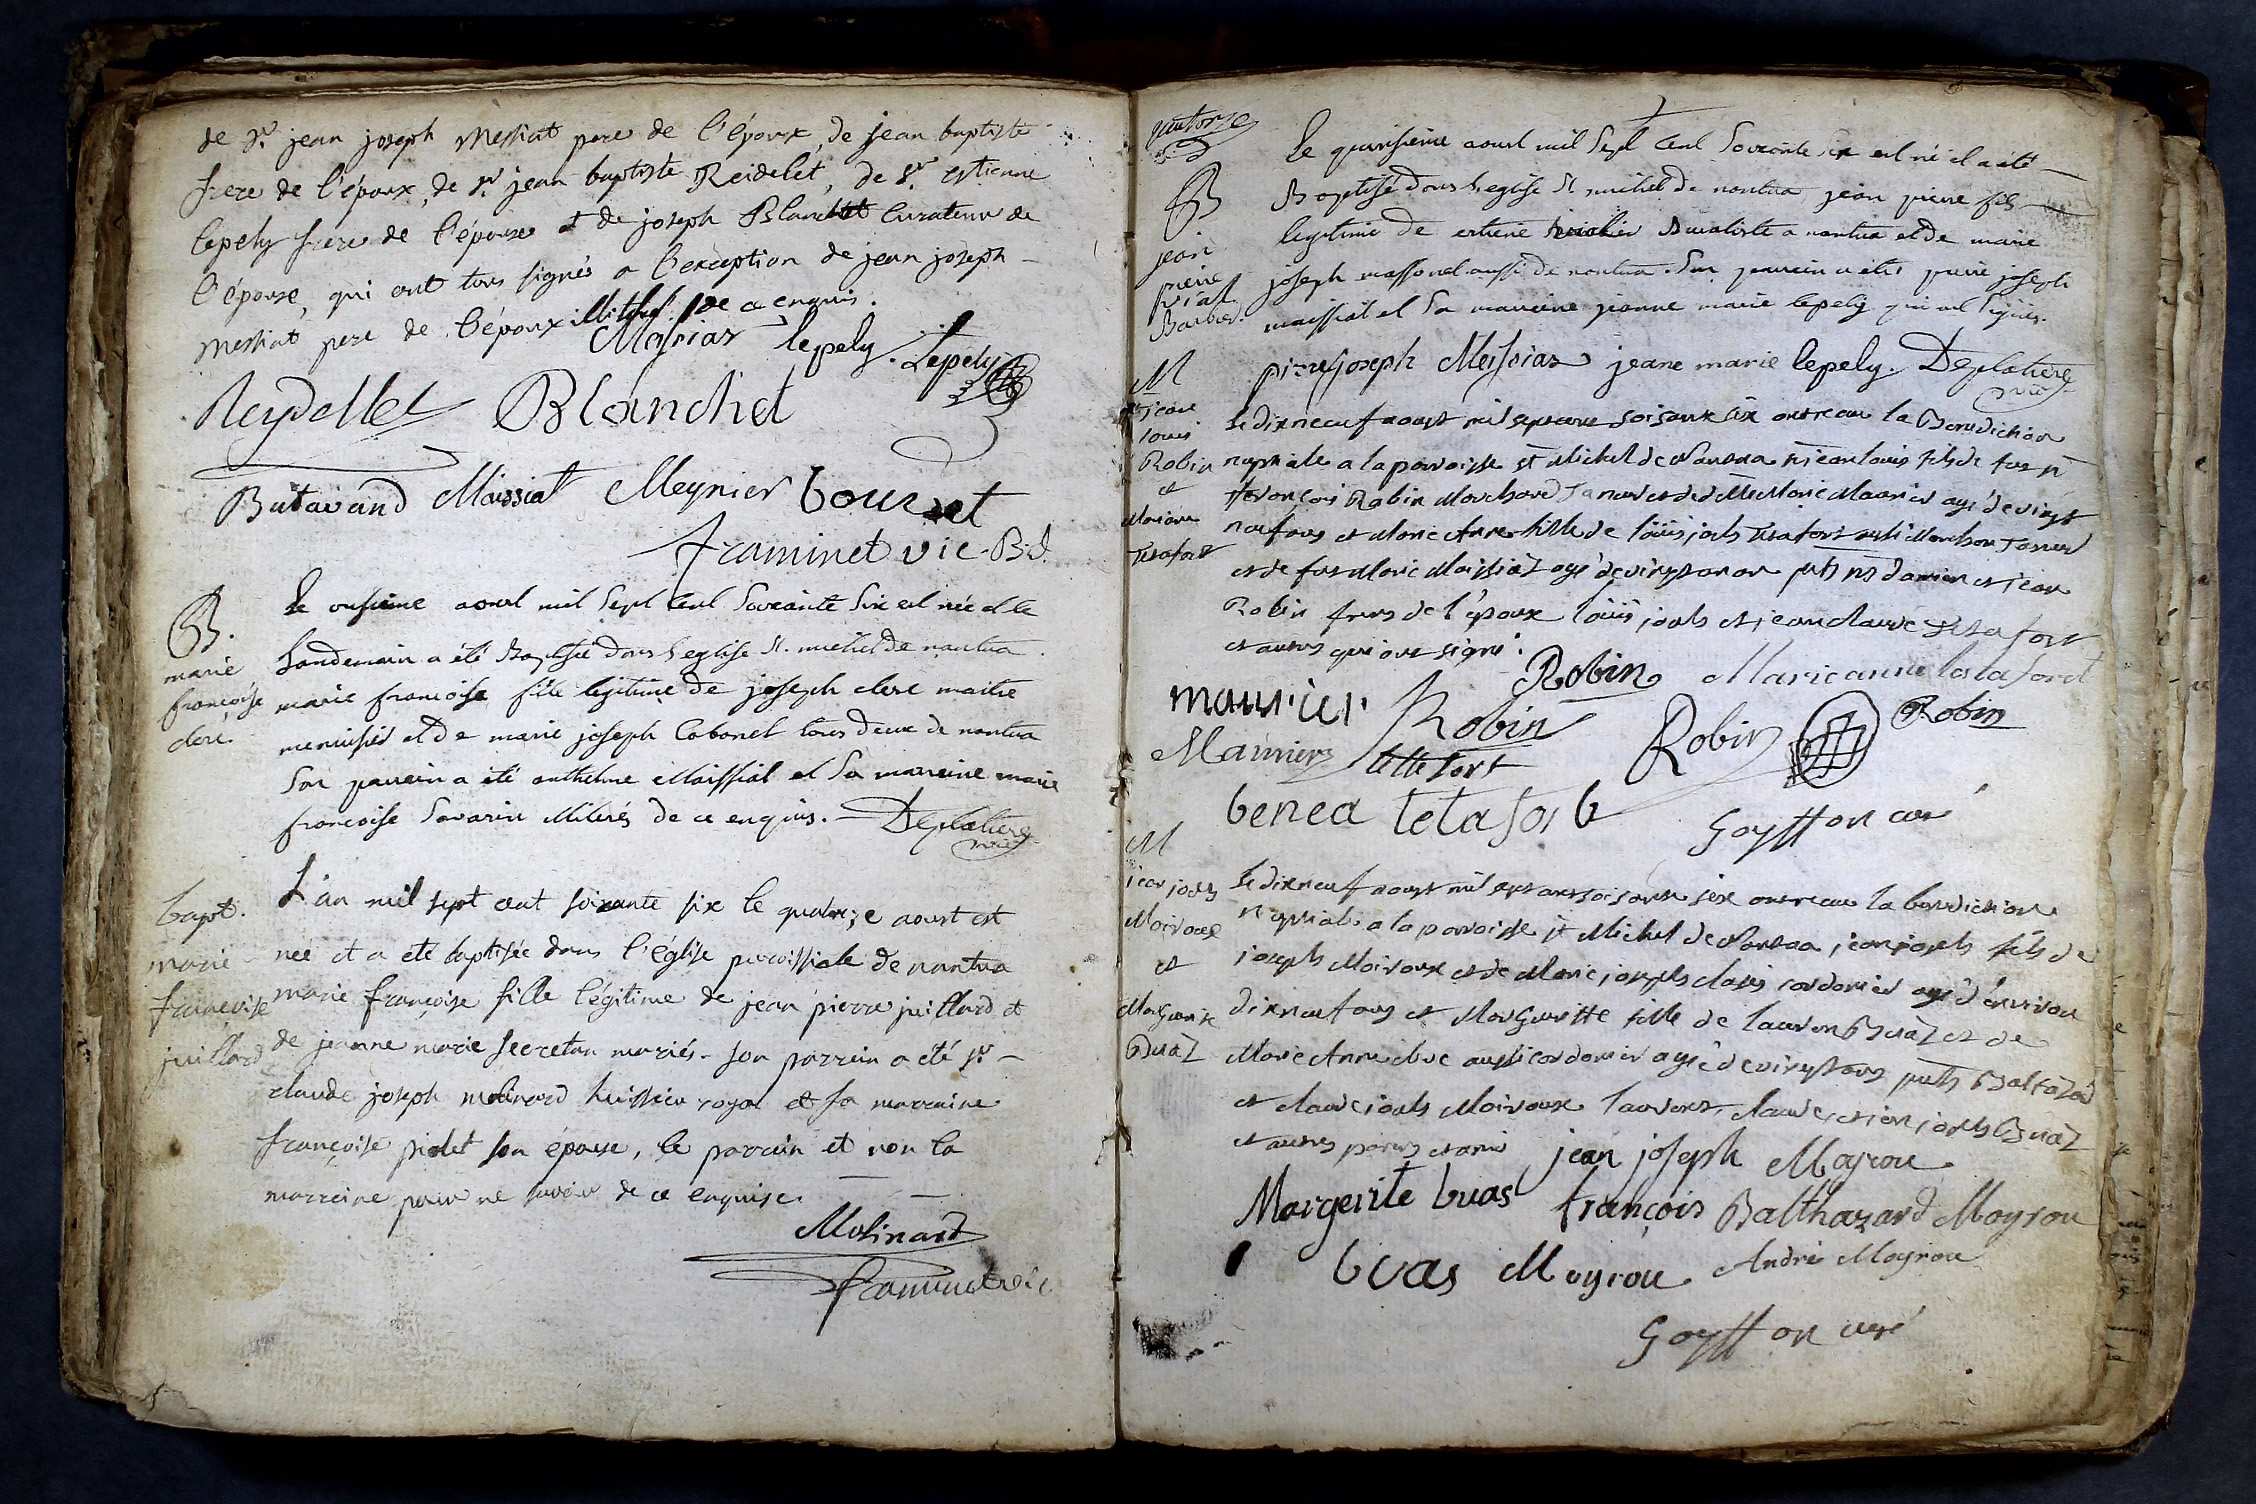 de Sr. jean joseph Messiat pere de l'époux, de jean baptiste
frere de l'époux, de Sr. jean baptiste Reidelet, de Sr. estienne
lepely frere de l'épouse et de joseph Blanchet curateur de
l'épouse, qui ont tous signés a l'exception de jean joseph
Messiat pere de l'époux illitéré de ce enquis.
Messiat lepely. Lepely
Reydellet Blanchet
Butavand Maissiat Meynier bouret
framinet vic. Bd.
B.
marie
francoise
clerc.
Le onsieme aoust mil sept cent soixante six est née et le
landemain a été Baptisée dans l'eglise st. michel de nantua
marie francoise fille legitime de joseph clerc maitre
menuisier et de marie joseph Cabanet tous deux de nantua
son parrein a été anthelme Maissiat et sa marreine marie
francoise Savarin illiterés de ce enquis. Deplatiere
vic
bapt.
marie
françoise
juillard
L'an mil sept cent soixante six le quatorze aoust est
née et a eté baptisée dans l'église paroissiale de nantua
marie françoise fille légitime de jean pierre juillard et
de jeanne marie secretan mariés. son parrein a été sr
claude joseph molinard huissier royal et sa marraine
françoise piolet son épouse, le parrain et non la
marreine pour ne savoir de ce enquise.
Molinard
framinet vic
quatorze
B
jean
pierre
Barbier.
Le quinsieme aoust mil sept cent soixante six est né et a été
Baptisé dans l'eglise st michel de nantua jean pierre fils
legitime de estiene Buraliste a nantua et de marie
joseph massonet aussi de nantua. Son parrein a été pierre joseph
maissiat et sa marreine jeanne marie lepely qui ont signés.
pierre joseph Messiat jeane marie lepely. Deplatiere
vic
M
jean
louis
Robin
et
Mariane
Tetafort
Le dix neuf aoust mil sept cent soixante six ont recu la Benediction
nuptiale a la parroisse st Michel de Nantua sr jean louis fils de feu sr
françois Robin Marchand Taneur et de dlle Marie Maurier agé de vingt
neuf ans et Marie Anne fille de loüis joseph Tetafort aussi Marchan Taneur
et de feue Marie Maissiat agé de vingt un an pnts srs Damien et jean
Robin freres de l'époux loüis joseph et jean claude Tetafort
et autres qui ont signé.
Robin Marie anne tetafort
maurier Robin Robin Robin
Maurier tettefort
benea tetafort
Goyffon curé
M
jean joseph
Moiroux
et
Marguerite
Buaz
Le dix neuf aoust mil sept cent soisante six ont recu la benediction
nuptiale a la parroisse st Michel de Nantua, jean joseph fils de
joseph Moiroux et de Marie joseph clavis cordonier agé d'environ
dix neuf ans et Marguerite fille de laurent Buaz et de
Marie Anne duc aussi cordonier agée de vingt ans pnts Baltazar
et claude joseph Moiroux laurent, claude, et jean joseph Buaz
et autres parens et amis jean joseph Moyrou
Margerite buas françois Balthazard Moyrou
buas Moyrou André Moyrou
Goyffon curé